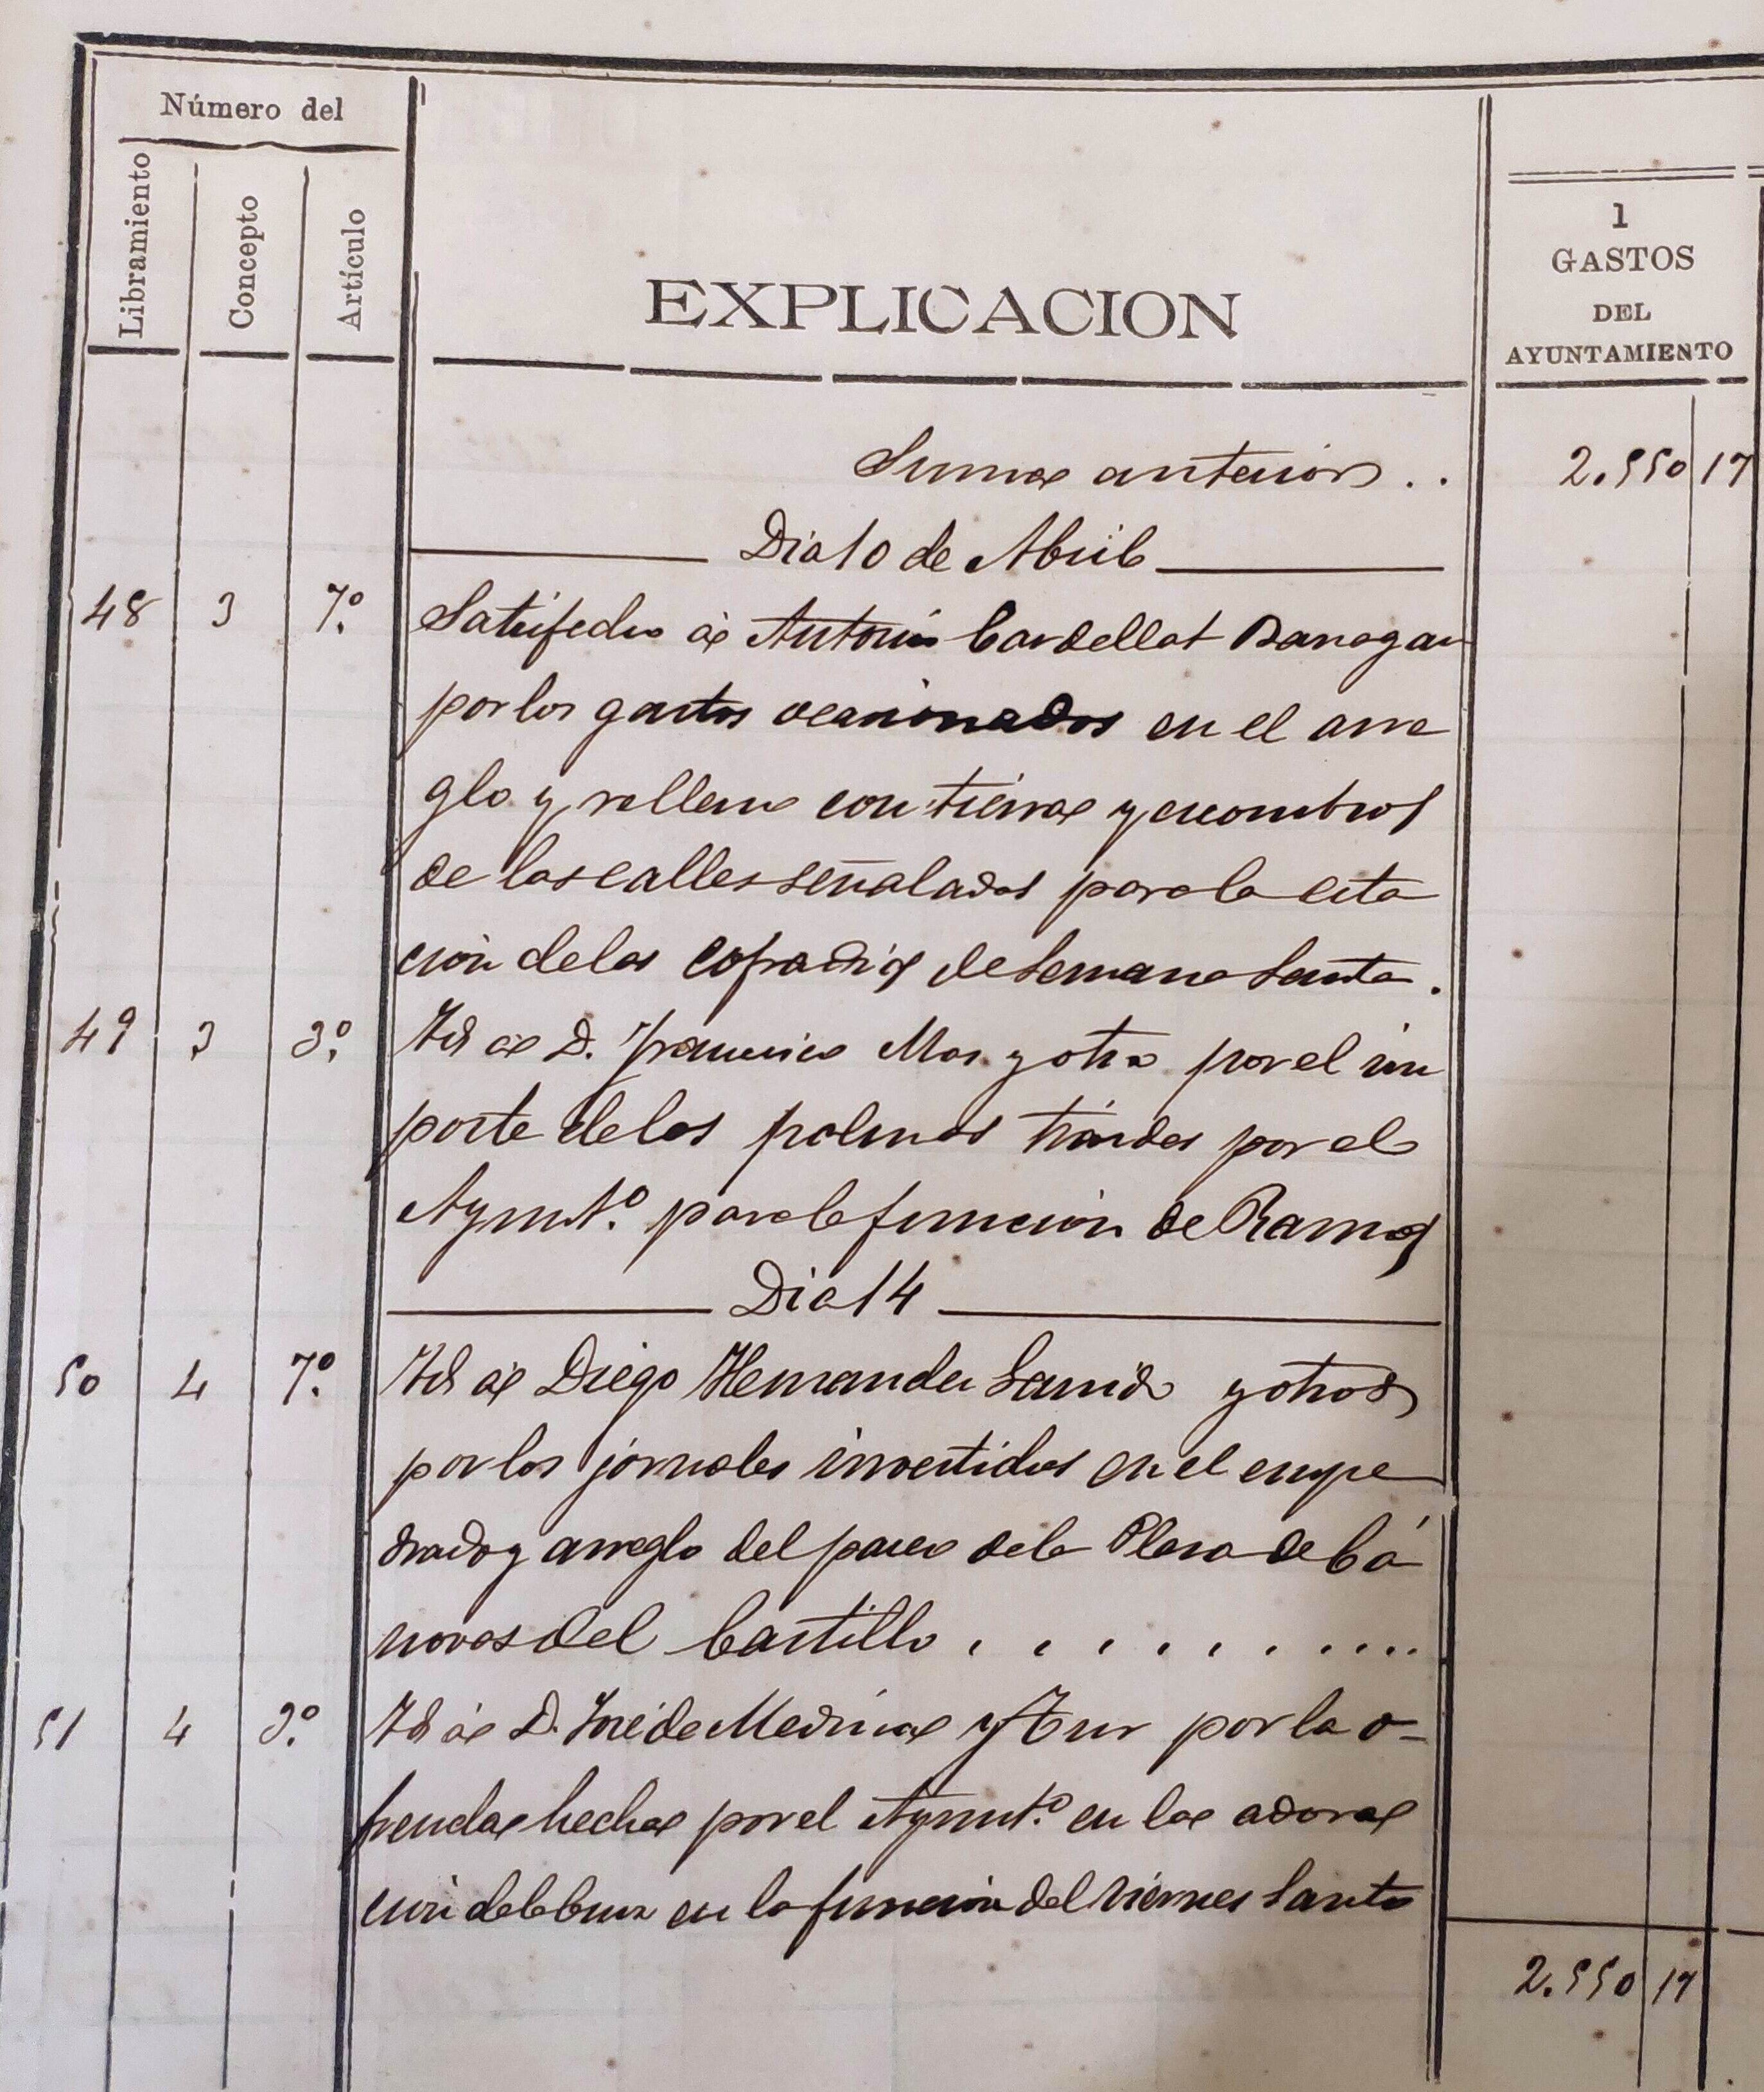 Número del
Libramiento
Concepto
Artículo
EXPLICACION
1
GASTOS
DEL
AYUNTAMIENTO
Suma anterior . . 2.550 17
Dia 10 de Abril
48 3 7.º Satisfecho á Antonio Cardellat
por los gastos ocasionados en el arre
glo y relleno con tierra y escombros
de las calles señaladas para la esta
ción de las cofradias de Semana Santa.
49 3 3.º Id á D. Francisco Mas y otro por el im
porte de las palmas traidas por el
Ayunt.º para la función de Ramos
Dia 14
50 4 7.º Id á Diego Hernandez y otros
por los jornales invertidos en el empe
drado y arreglo del paseo de la Plaza de Cá
novas del Castillo . . . . . . . . . . .
51 4 3.º Id á D. José de Medina y Tur por la o-
frenda hecha por el Ayunt.º en la adora
ción de la Cruz en la función del Viernes Santo
2.550 17